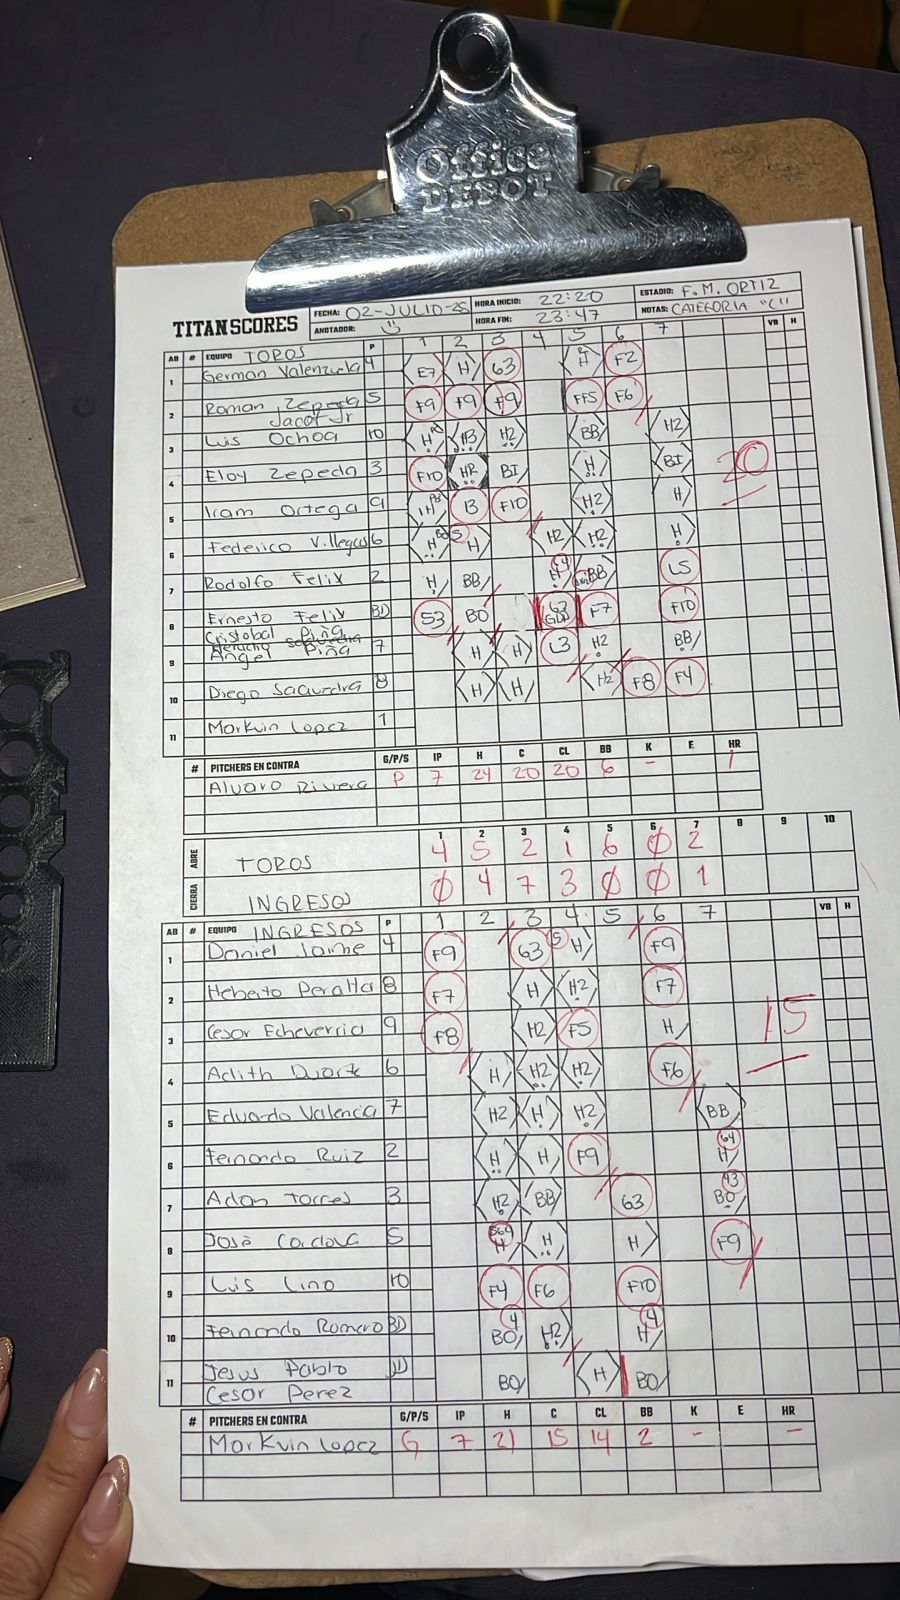 Office
DEPOT
TITANSCORES
FECHA: 02-JULIO-25 HORA INICIO: 22:20 ESTADIO: F.M. ORTIZ
ANOTADOR: HORA FIN: 23:47 NOTAS: CATEGORIA "C"
AB # EQUIPO TOROS P 1 2 3 4 5 6 7 VB H
1 German Valenzuela 4 E7 H 63 H F2
2 Roman Zepeda 5 F9 F9 F9 FF5 F6
Jacof Jr
3 Luis Ochoa 10 H H3 H2 BB H2
4 Eloy Zepeda 3 F10 HR BI H BI 20
5 Iram Ortega 9 H 13 F10 H2 H
6 Federico Villegas 6 H 5 H H2 H2 H
7 Rodolfo Felix 2 H BB H BB L5
8 Ernesto Felix BD 53 BO 63 GDP F7 F10
Cristobal Piña
9 Angel Piña 7 H H L3 H2 BB
10 Diego Saavedra 8 H H H2 F8 F4
11 Markuin Lopez 1
# PITCHERS EN CONTRA G/P/S IP H C CL BB K E HR
Alvaro Rivera P 7 24 20 20 6 - 1
1 2 3 4 5 6 7 8 9 10
ABRE TOROS 4 5 2 1 6 Ø 2
CIERRA INGRESOS Ø 4 7 3 Ø Ø 1
AB # EQUIPO INGRESOS P 1 2 3 4 5 6 7 VB H
1 Daniel Jaime 4 F9 63 5 H F9
2 Heberto Peralta 8 F7 H H2 F7
3 Cesar Echeverria 9 F8 H2 F5 H 15
4 Adith Duarte 6 H H2 H2 F6
5 Eduardo Valencia 7 H2 H H2 BB
6 Fernando Ruiz 2 H H F9 64 H
7 Adan Torres 3 H2 BB 63 43 BO
8 José Cordova 5 564 H H H F9
9 Luis Lino 10 F4 F6 F10
10 Fernando Romero BD 4 BO H2 4 H
11 Jesus Pablo BO H BO
Cesar Perez
# PITCHERS EN CONTRA G/P/S IP H C CL BB K E HR
Markuin Lopez G 7 21 15 14 2 - -